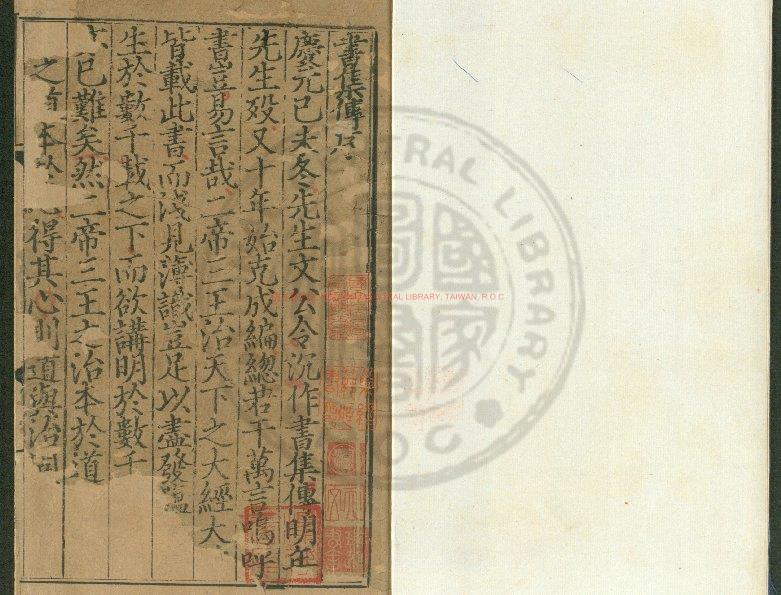 書集傳序
慶元己未冬先生文公令沉作書集傳明年
先生歿又十年始克成編緫若干萬言嗚呼
書豈易言哉二帝三王治天下之大經大
皆載此書而淺見薄識豈足以盡發蘊
生於數千載之下而欲講明於數千
已難矣然二帝三王之治本於道
之 本 得其心則道與治
CENTRAL LIBRARY, TAIWAN, R.O.C
TRAL LIBRARY
ROC
國家圖